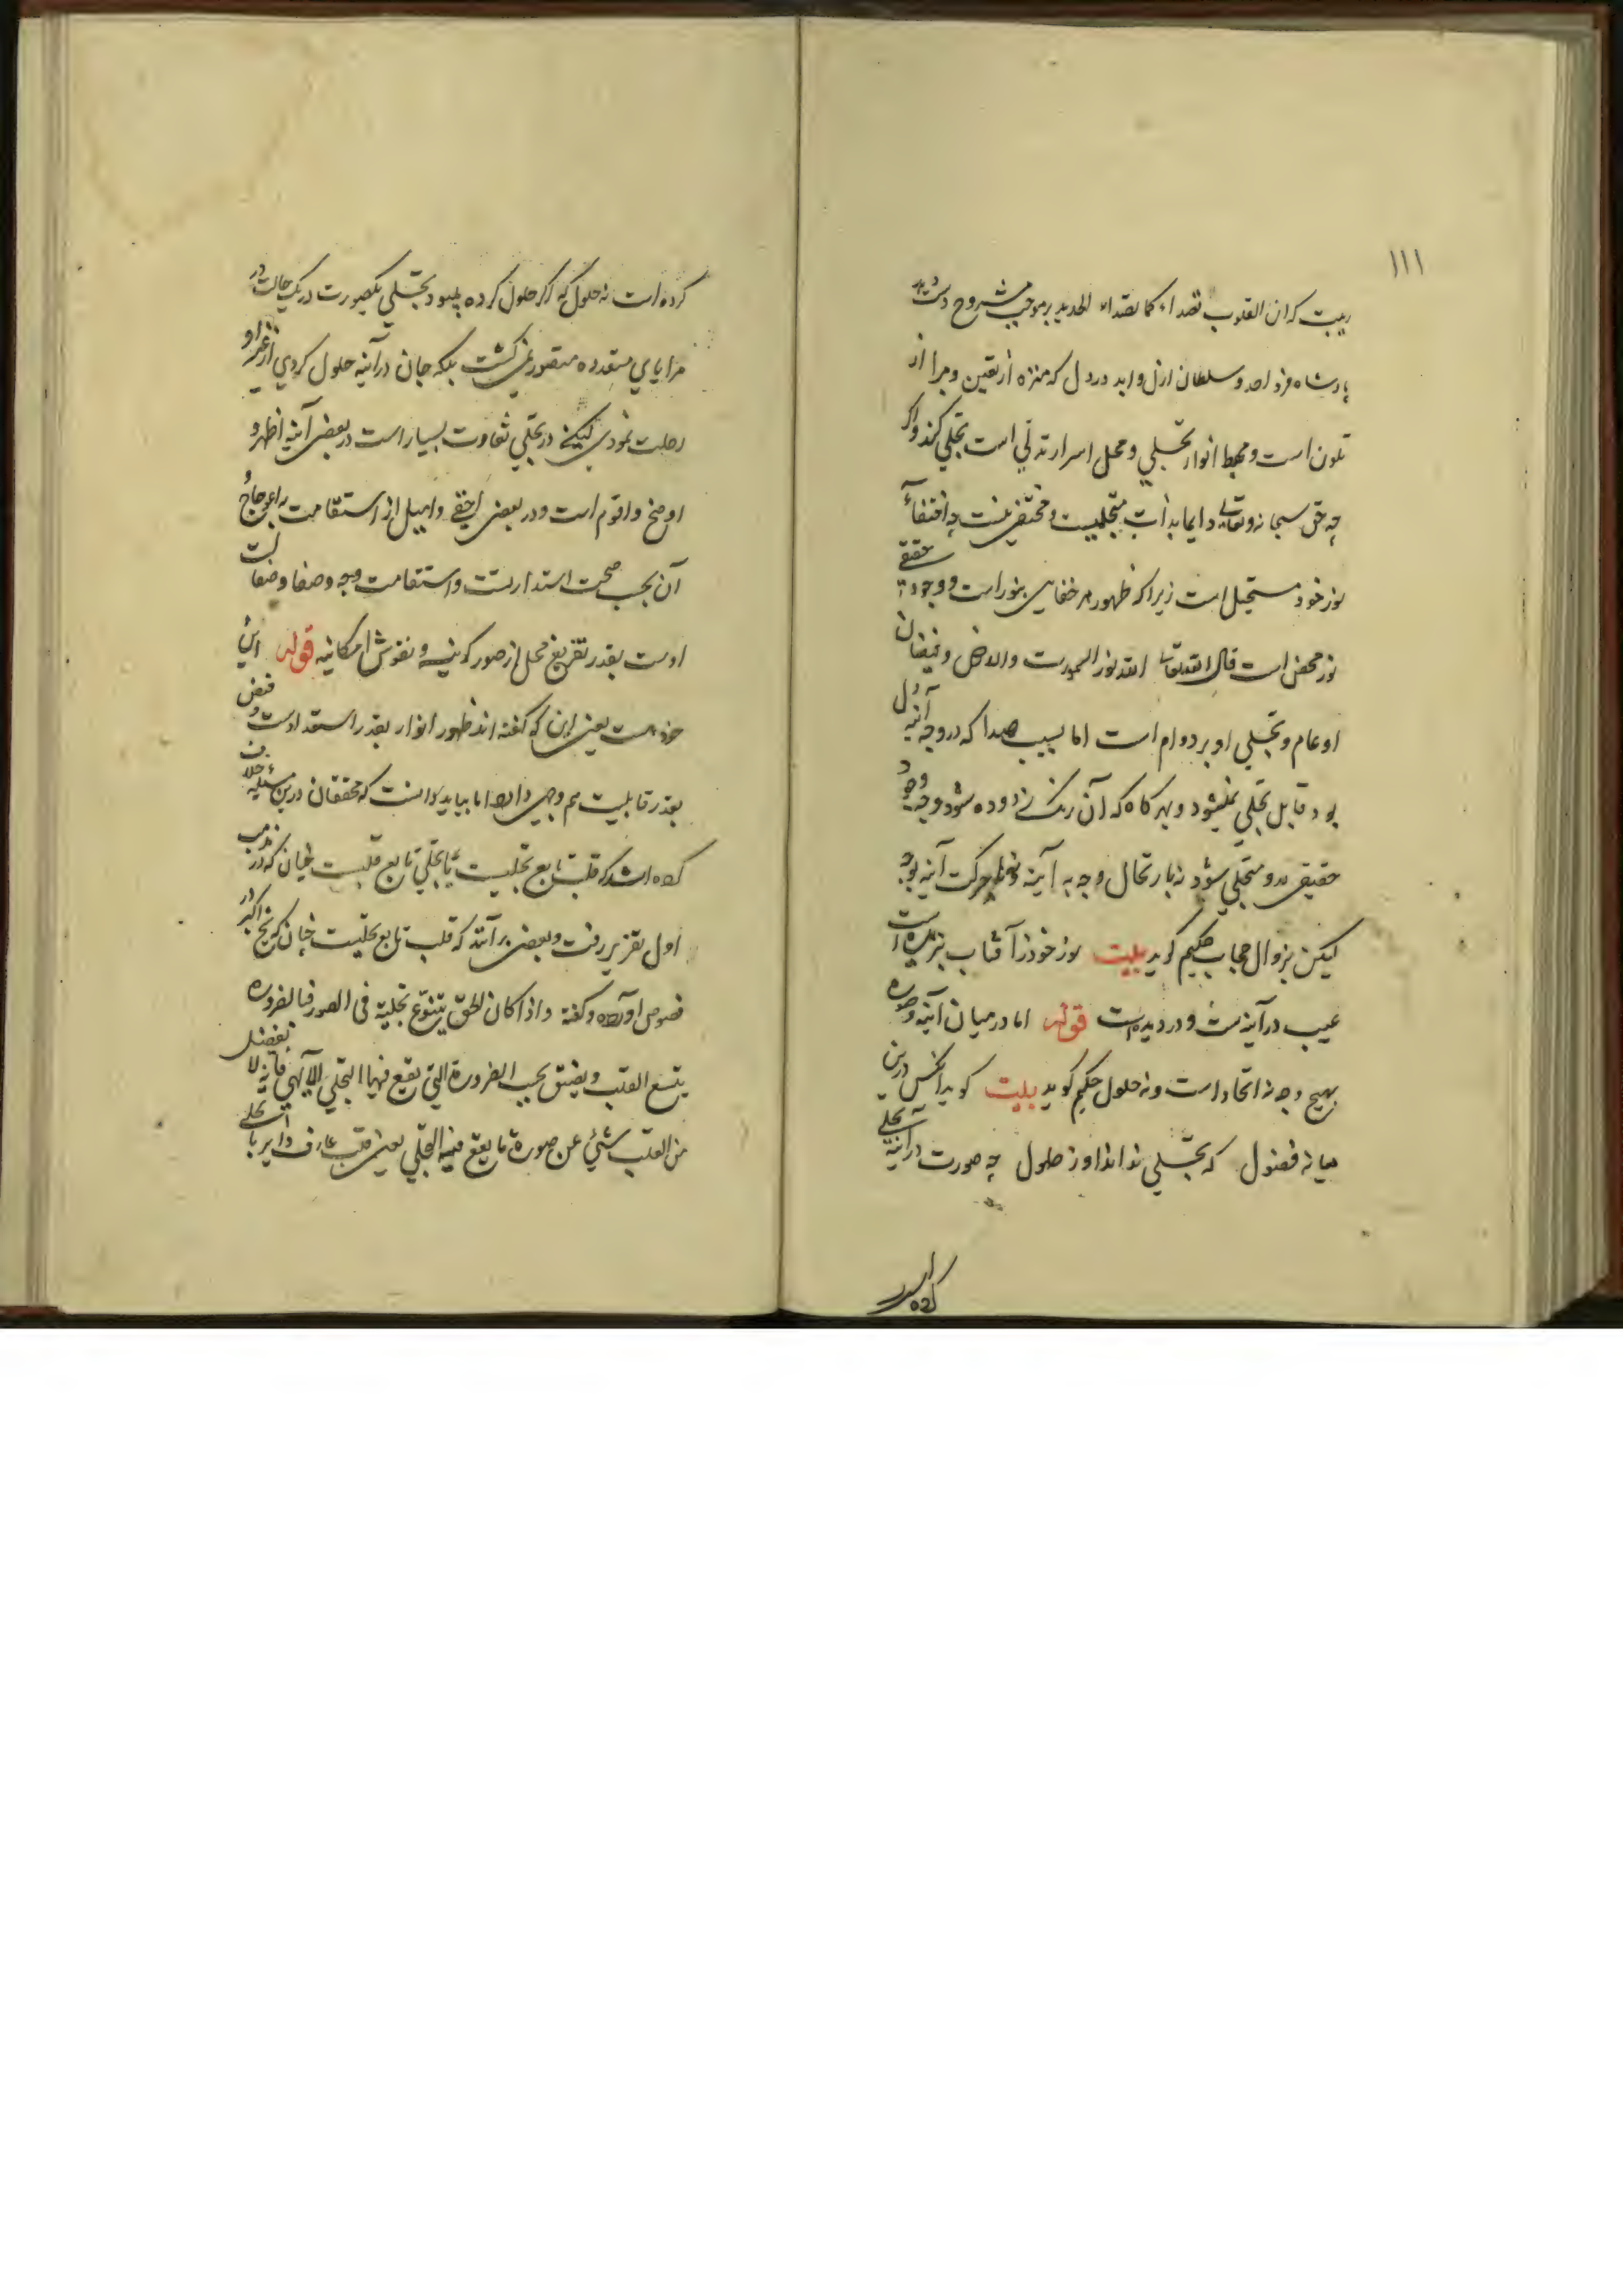 ۱۱۱
ریبت که ان القلوب تصداء کما تصداء الحدید بر موجب مشروح دست دهد
پادشاه فرد احد و سلطان ازل و ابد در دل که منزه از تعین و مبرا از
تلون است و مهبط انوار تجلی و محل اسرار تدلی است تجلی کند و اگر
چه حق سبحانه و تعالی دایما بذات متجلیست و مختفی نیست چه اختفاء
نور خود مستحیل است زیرا که ظهور هر خفایی بنور است و وجود حقیقی
نور محض است قال الله تعالی الله نور السموت والارض و فیضان
او عام و تجلی او بر دوام است اما بسبب صدا که در وجه آینه دل
بود قابل تجلی نمیشود و هر کاه که آن زنک زدوده شود وجه وجود
حقیقی درو متجلی شود نه بارتحال وجه به آینه و نه بحرکت آینه بوجه
لیکن بزوال حجاب حکیم کوید بیت نور خود ز آفتاب نبریده است
عیب در آینه ست و در دیده ست قوله اما در میان آینه و صوره
بهیچ وجه نه اتحاد است و نه حلول حکیم کوید بیت کوید انکس درین
میانه فضول که تجلی نداند او ز حلول چه صورت در آینه تجلی
کرده است
کرده است نه حلول که اگر حلول کرده بودی تجلی یکصورت در یک حالت در
مرایای متعدده متصور نمی کشت بلکه چنان در آینه حلول کردی از غیر او
رحلت نمودی لیکن در تجلی تفاوت بسیار است در بعضی آینه اظهر و
اوضح و اقوم است و در بعضی اخفی و امیل از استقامت باعوجاج و
آن بحسب صحت استدارت و استقامت وجه و صفا وصفالت
اوست بقدر تفریغ محل از صور کونیه و نقوش امکانیه قوله این
خود هست یعنی این که کفته اند ظهور انوار بقدر استعدادست و فیض
بقدر قابلیت هم وجهی دارد اما بباید دانست که محققان درین مسئله خلاف
کرده اند که قلب تابع تجلیست یا تجلی تابع قلبست چنان که در مذهب
اول تقریر رفت و بعضی برآنند که قلب تابع تجلیست چنان که شیخ اکبر در
فصوص آورده و کفته واذا کان الحق یتنوع تجلیه فی الصور فبالضروره
یتسع القلب ویضیق بحسب الصورة التی یقع فیها التجلی الالهی فانه لا یفضل
من القلب شیئ عن صورة ما یقع فیها التجلی یعنی قلب عارف دایر با تجلی